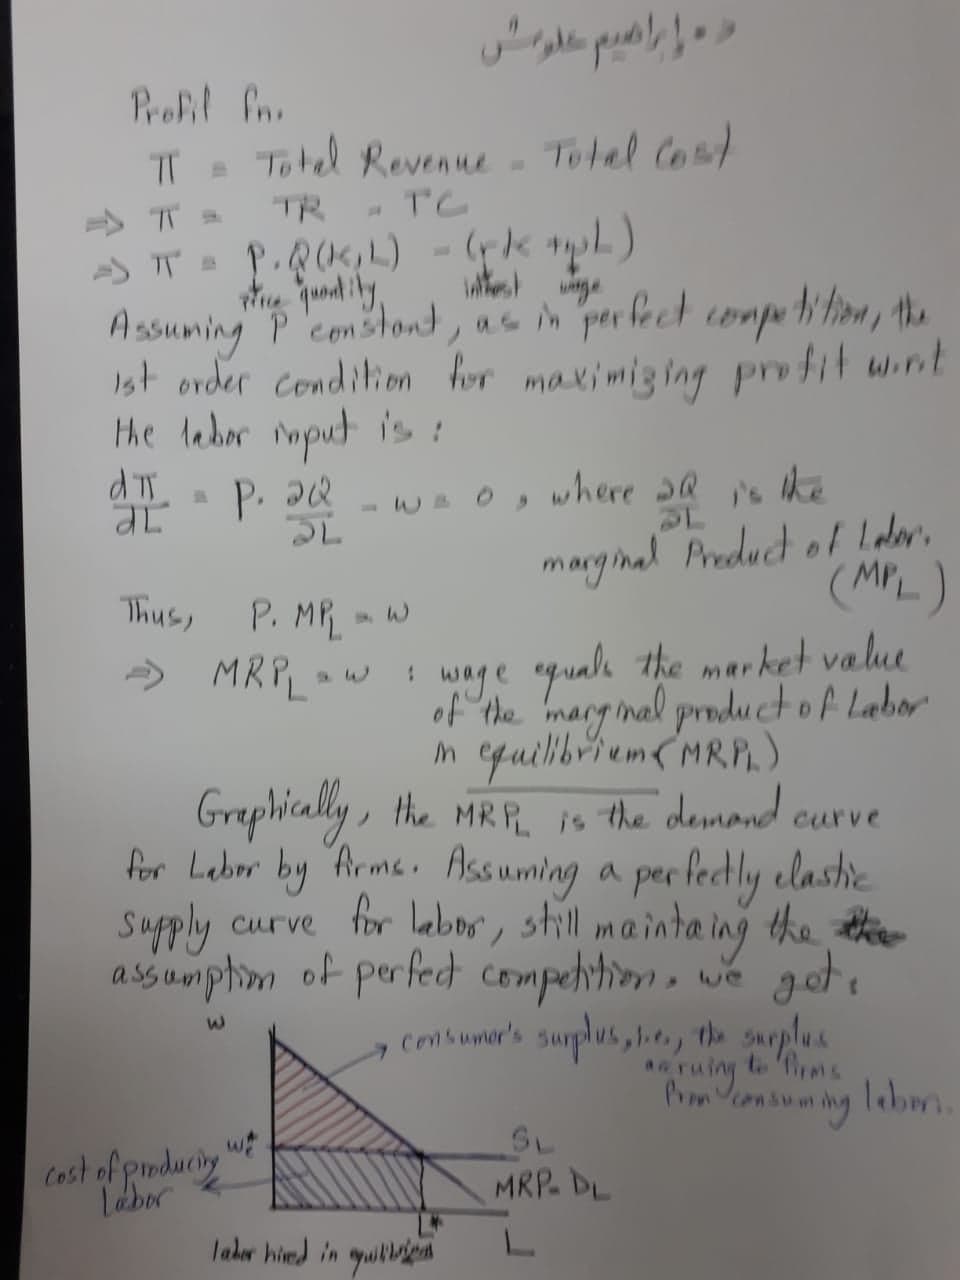 د. إبراهيم علوش
Profit fn.
π = Total Revenue - Total Cost
⇒ π = TR - TC
⇒ π = P.Q(K,L) - (rK + wL)
Price quantity intrest wage
Assuming P constant, as in perfect competition, the
1st order condition for maximizing profit w.r.t
the labor input is:
dπ/dL = P. ∂Q/∂L - w = 0, where ∂Q/∂L is the
marginal Product of Labor.
(MP_L)
Thus, P. MP_L = w
⇒ MRP_L = w : wage equals the market value
of the marginal product of Labor
in equilibrium (MRP_L)
Graphically, the MRP_L is the demand curve
for Labor by firms. Assuming a perfectly elastic
supply curve for labor, still maintaing the
assumption of perfect competition, we get:
w
consumer's surplus, i.e., the surplus
accruing to firms
from consuming labor.
w*
S_L
cost of producing
Labor
MRP = D_L
L*
L
labor hired in equilibrium